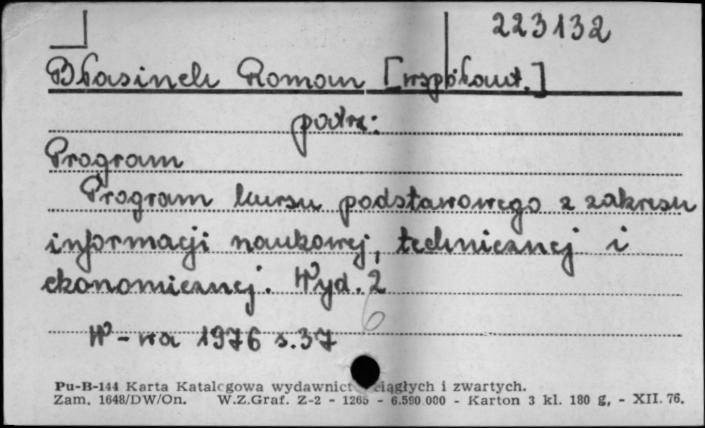 223132
Błasinek Roman [współaut.]
patrz:
Program
Program kursu podstawowego z zakresu
informacji naukowej, technicznej i
ekonomicznej. Wyd. 2
6
W-wa 1976 s. 37
Pu-B-144 Karta Katalogowa wydawnict ciągłych i zwartych.
Zam. 1648/DW/On. W.Z.Graf. Z-2 - 1265 - 6.590.000 - Karton 3 kl. 180 g, - XII. 76.